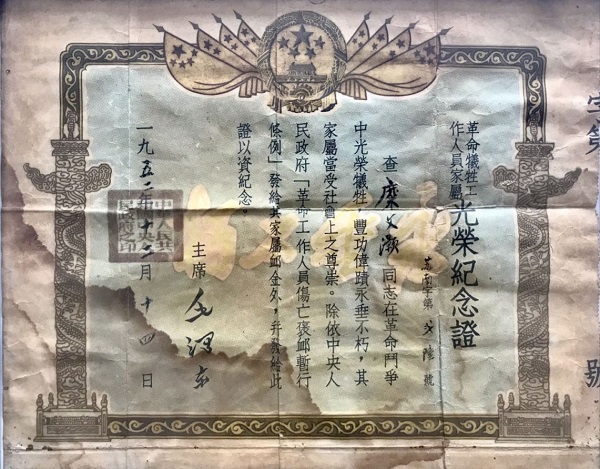 字第
號
革命犧牲工
作人員家屬
光榮紀念證
字第 號
查 同志在革命鬥爭
中光榮犧牲，豐功偉蹟永垂不朽，其
家屬當受社會上之尊崇。除依中央人
民政府「革命工作人員傷亡褒卹暫行
條例」發給其家屬卹金外，并發給此
證以資紀念。
主席 毛澤東
一九五二年十二月十四日